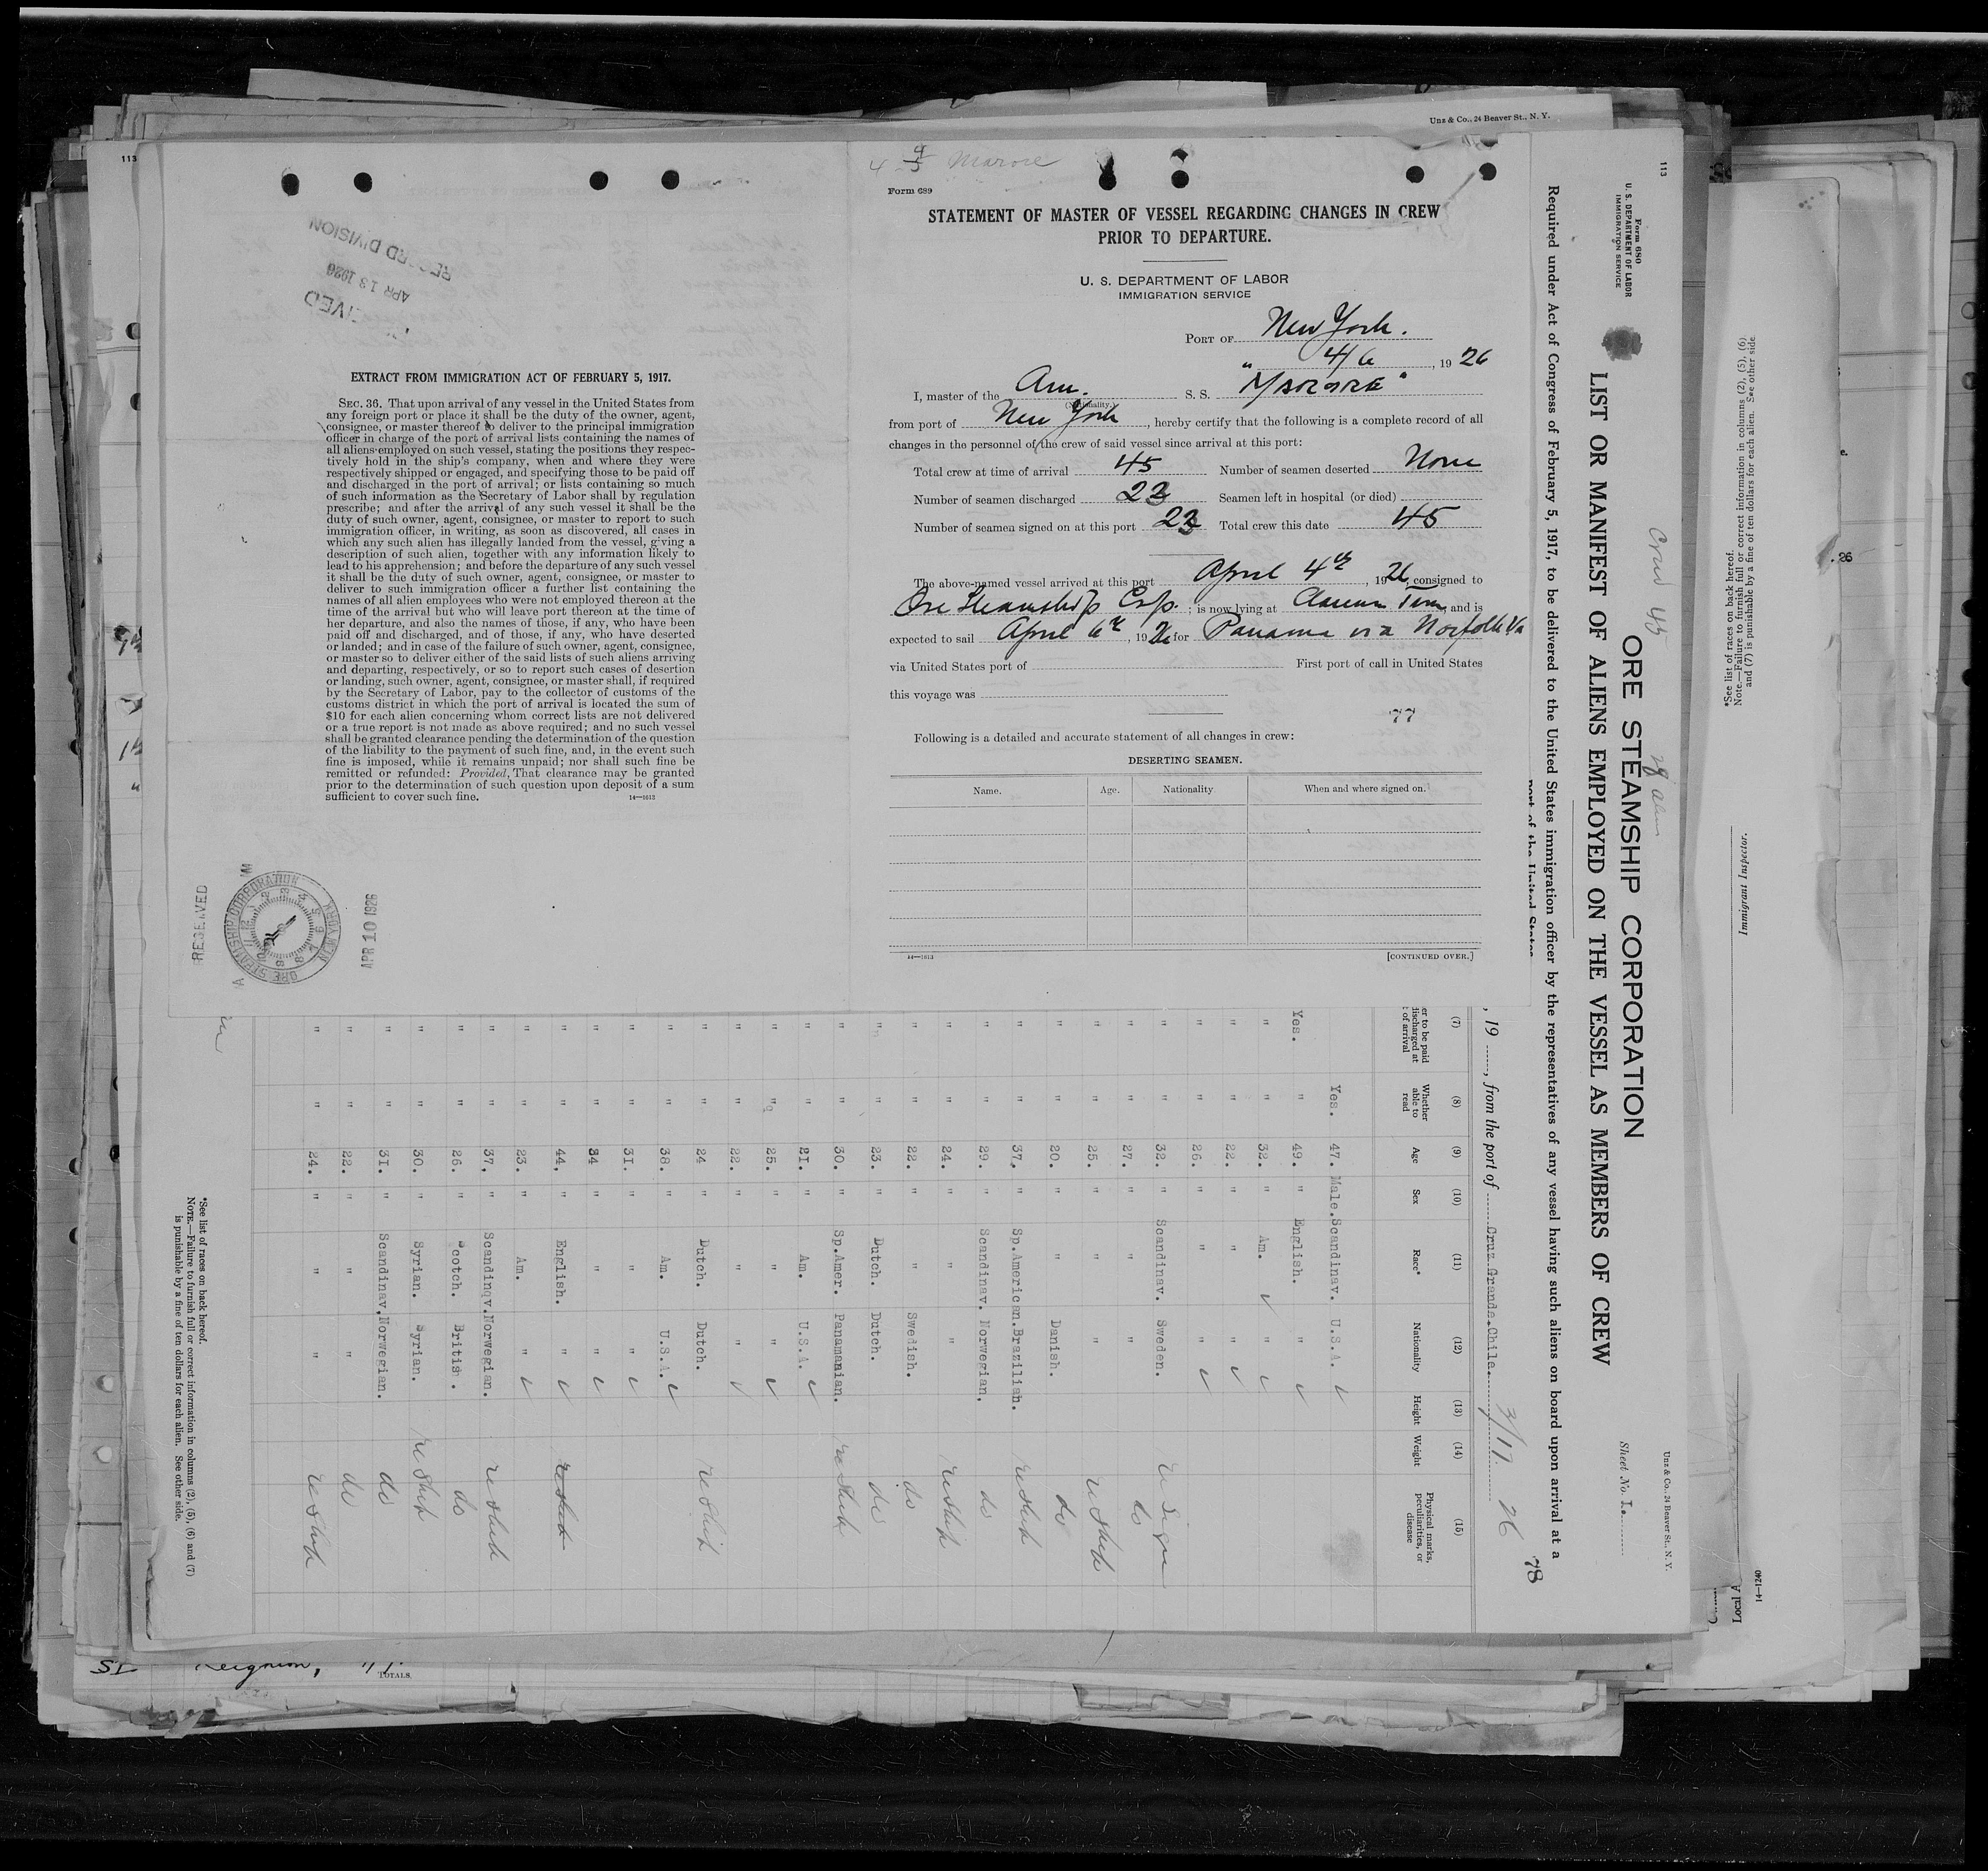 Unz & Co., 24 Beaver St., N. Y.
113
RECEIVED
APR 13 1926
RECORD DIVISION
EXTRACT FROM IMMIGRATION ACT OF FEBRUARY 5, 1917.
SEC. 36. That upon arrival of any vessel in the United States from
any foreign port or place it shall be the duty of the owner, agent,
consignee, or master thereof to deliver to the principal immigration
officer in charge of the port of arrival lists containing the names of
all aliens employed on such vessel, stating the positions they respec-
tively hold in the ship's company, when and where they were
respectively shipped or engaged, and specifying those to be paid off
and discharged in the port of arrival; or lists containing so much
of such information as the Secretary of Labor shall by regulation
prescribe; and after the arrival of any such vessel it shall be the
duty of such owner, agent, consignee, or master to report to such
immigration officer, in writing, as soon as discovered, all cases in
which any such alien has illegally landed from the vessel, giving a
description of such alien, together with any information likely to
lead to his apprehension; and before the departure of any such vessel
it shall be the duty of such owner, agent, consignee, or master to
deliver to such immigration officer a further list containing the
names of all alien employees who were not employed thereon at the
time of the arrival but who will leave port thereon at the time of
her departure, and also the names of those, if any, who have been
paid off and discharged, and of those, if any, who have deserted
or landed; and in case of the failure of such owner, agent, consignee,
or master so to deliver either of the said lists of such aliens arriving
and departing, respectively, or so to report such cases of desertion
or landing, such owner, agent, consignee, or master shall, if required
by the Secretary of Labor, pay to the collector of customs of the
customs district in which the port of arrival is located the sum of
$10 for each alien concerning whom correct lists are not delivered
or a true report is not made as above required; and no such vessel
shall be granted clearance pending the determination of the question
of the liability to the payment of such fine, and, in the event such
fine is imposed, while it remains unpaid; nor shall such fine be
remitted or refunded: Provided, That clearance may be granted
prior to the determination of such question upon deposit of a sum
sufficient to cover such fine.
14—1613
RECEIVED
ORE STEAMSHIP CORPORATION
NEW YORK
APR 10 1926
4 4/5 Marore
Form 689
STATEMENT OF MASTER OF VESSEL REGARDING CHANGES IN CREW
PRIOR TO DEPARTURE.
U. S. DEPARTMENT OF LABOR
IMMIGRATION SERVICE
PORT OF New York.
" 4/6, 19 26
I, master of the Am. S. S. "MARORE"
(Nationality.)
from port of New York, hereby certify that the following is a complete record of all
changes in the personnel of the crew of said vessel since arrival at this port:
Total crew at time of arrival 45 Number of seamen deserted None
Number of seamen discharged 23 Seamen left in hospital (or died)
Number of seamen signed on at this port 23 Total crew this date 45
The above-named vessel arrived at this port April 4th, 1926, consigned to
Ore Steamship Corp.; is now lying at and is
expected to sail April 6th, 1926 for Panama via Norfolk Va
via United States port of First port of call in United States
this voyage was
77
Following is a detailed and accurate statement of all changes in crew:
DESERTING SEAMEN.
Name. Age. Nationality When and where signed on.
14—1613 [CONTINUED OVER.]
113
Unz & Co., 24 Beaver St., N. Y.
Form 680
U. S. DEPARTMENT OF LABOR
IMMIGRATION SERVICE
Crew 45 29 alien
ORE STEAMSHIP CORPORATION
Sheet No I.
LIST OR MANIFEST OF ALIENS EMPLOYED ON THE VESSEL AS MEMBERS OF CREW
Required under Act of Congress of February 5, 1917, to be delivered to the United States immigration officer by the representatives of any vessel having such aliens on board upon arrival at a
port of the United States
78
, 19 , from the port of Cruz Grande. Chile. 3/17 26
(7) (8) (9) (10) (11) (12) (13) (14) (15)
er to be paid discharged at of arrival Whether able to read Age Sex Race* Nationality Height Weight Physical marks, peculiarities, or disease
Yes. 47. Male. Scandinav. U.S.A. ✓
Yes. " 49. " English. " ✓
" " 32. " Am. ✓ " ✓
" " 22. " " " ✓
" " 26. " " " ✓
" " 32. " Scandinav. Sweden. re Sign
" " 27. " " " do
" " 25. " " " reship
" " 20. " " Danish. do
" " 37. " Sp.American. Brazilian. reship
" " 29. " Scandinav. Norwegian. do
" " 24. " " " reship
" " 22. " " Swedish. do
" " 23. " Dutch. Dutch. do
" " 30. " Sp.Amer. Panamanian. reship
" " 21. " Am. U.S.A. ✓
" " 25. " " " ✓
" " 22. " " " ✓
" " 24 " Dutch. Dutch. reship
" " 38. " Am. U.S.A. ✓
" " 31. " " " ✓
" " 34 " " " ✓
" " 44. " English. " ✓ reship
" " 23. " Am. " ✓
" " 37. " Scandinav. Norwegian. reship
" " 26. " Scotch. British. do
" " 30. " Syrian. Syrian. reship
" " 31. " Scandinav. Norwegian. do
" " 22. " " " do
" " 24. " " " reship
*See list of races on back hereof.
NOTE.—Failure to furnish full or correct information in columns (2), (5), (6) and (7)
is punishable by a fine of ten dollars for each alien. See other side.
*See list of races on back hereof.
Note—Failure to furnish full or correct information in columns (2), (5), (6)
and (7) is punishable by a fine of ten dollars for each alien. See other side
Immigrant Inspector.
14—1240
Local A
26
TOTALS